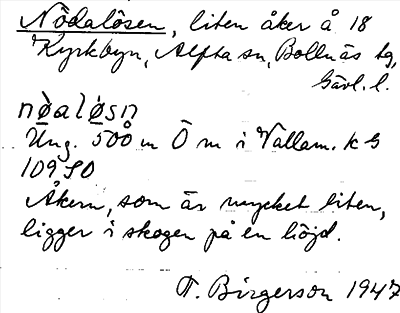 Nödalösen, liten åker å 18
Kyrkbyn, Alfta sn, Bollnäs tg,
Gävl. l.
nø̀aløsn
Ung. 500 m Ö m i Vallam. k G
109 SO
Åkern, som är mycket liten,
ligger i skogen på en höjd.
T. Birgerson 1947